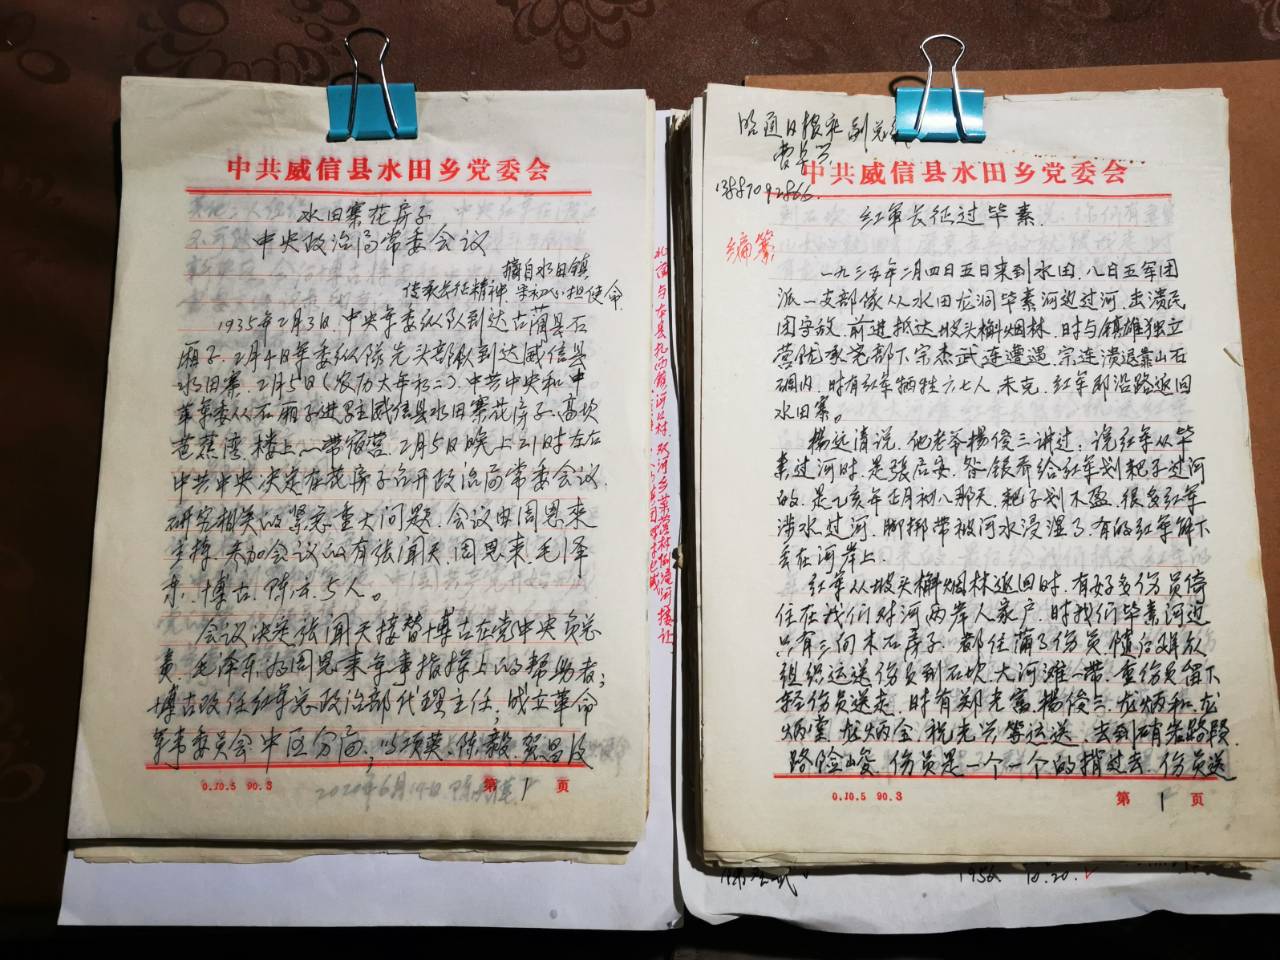 中共威信县水田乡党委会
水田寨花房子
中央政治局常委会议
摘自水田镇
传承长征精神、牢初心担使命
1935年2月3日,中央军委纵队到达古蔺县石
厢子,2月4日军委纵队先头部队到达威信县
水田寨,2月5日(农历大年初二)中共中央和中
革军委从石厢子进驻威信县水田寨花房子、高坎
芭蕉湾、楼上一带宿营,2月5日晚上21时左右
中共中央决定在花房子召开政治局常委会议,
研究相关的紧急重大问题,会议由周恩来
主持,参加会议的有张闻天、周恩来、毛泽
东、博古、陈云、5人。
会议决定张闻天接替博古在党中央负总
责,毛泽东为周恩来军事指挥上的帮助者;
博古改任红军总政治部代理主任;成立革命
军事委员会中区分局,以项英、陈毅、贺昌及
0.10.5 90.3
2020年6月19日
第 1 页
昭通日报社副总
中共威信县水田乡党委会
红军长征过毕素
编纂:
一九三五年二月四日五日来到水田,八日五军团
派一支部队从水田龙洞毕素河边过河,击溃民
团守敌,前进抵达坡头槲烟林,时与镇雄独立
营陇承尧部下宗杰武连遭遇,宗连溃退靠山石
硐内,时有红军牺牲六七人,未克,红军即沿路返回
水田寨。
杨远清说,他老爷杨俊三讲过,说红军从毕
素过河时,是张启安、昝银乔给红军划耙子过河
的,是乙亥年正月初八那天,耙子划不盈,很多红军
涉水过河,脚绑带被河水浸湿了,有的红军解下
丢在河岸上。
红军从坡头槲烟林返回时,有好多伤员倚
住在我们对河两岸人家户,时我们毕素河边
只有三间木石房子,都住满了伤员,随后群众
组织运送伤员到石坎、大河滩一带,重伤员留下
轻伤员送走,时有郑光富、杨俊三、龙炳和、龙
炳棠、龙炳全、税光兴等运送,去到硝老路段,
路险山峻,伤员是一个一个的揹过去,伤员送
0.10.5 90.3
第 1 页
1956 10.20.